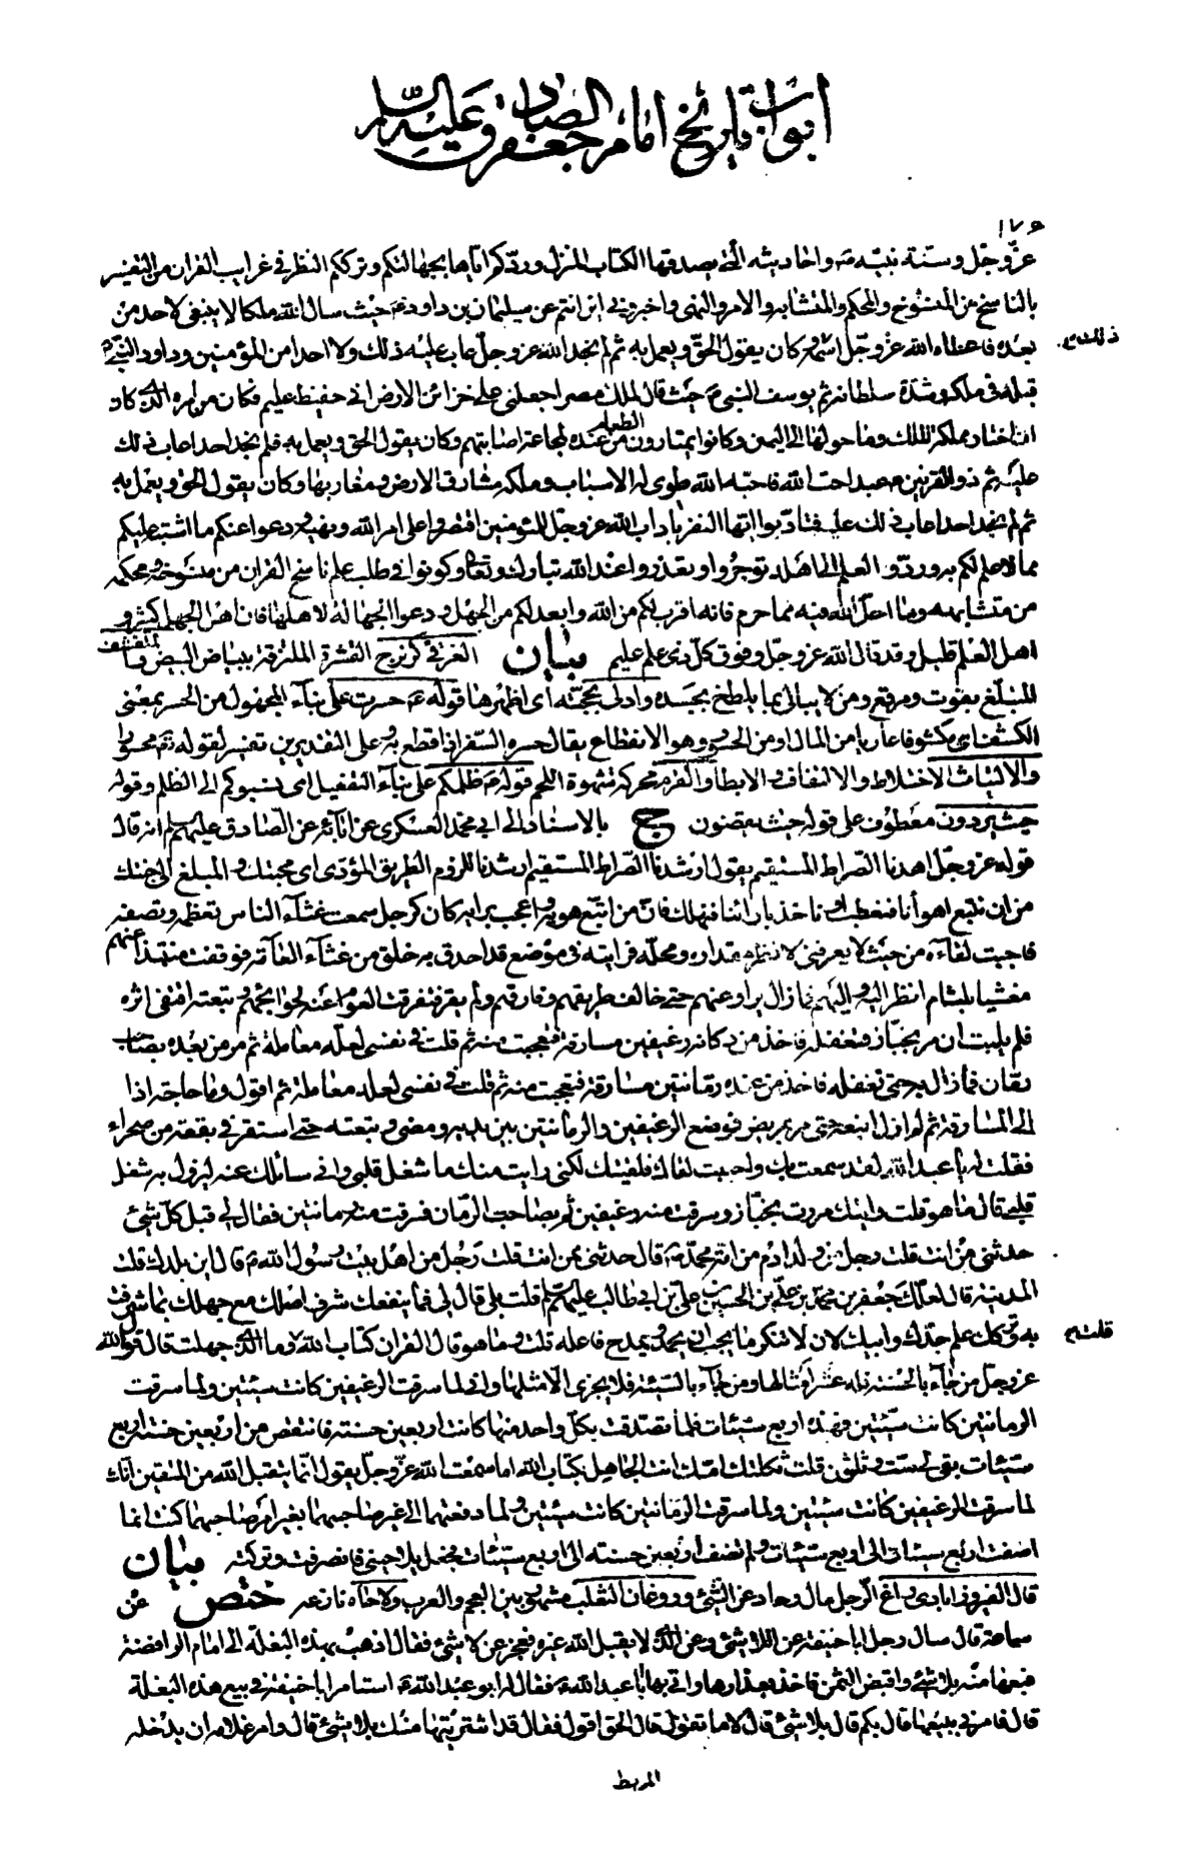 ابواب تاريخ امام جعفر الصادق عليه السلام
١٧٥
عزّ وجلّ وسنة نبيّه ص واحاديثه الّتي يصدقها الكتاب المنزل وردّكم اياها بجهالتكم وترككم النظر في غرايب القران من التفسير
بالناسخ من المنسوخ والمحكم والمتشابه والامر والنهى واخبروني اين انتم عن سليمان بن داود ع حيث سال الله ملكا لا ينبغي لاحد من
بعده فاعطاه الله عزّ وجلّ اسمه ذلك ثم كان يقول الحقّ ويعمل به ثم لم نجد الله عز وجلّ عاب عليه ذلك ولا احدا من المؤمنين وداود النبيّ ع
قبله في ملكه وشدّة سلطانه ثم يوسف النبي ع حيث قال لملك مصر اجعلني على خزائن الارض اني حفيظ عليم فكان من امره الذي كان
ان اختار مملكة الملك وما حولها الى اليمن وكانوا يمتارون الطعام من عنده لمجاعة اصابتهم وكان يقول الحق ويعمل به فلم نجد احدا عاب ذلك
عليه ثم ذو القرنين عبد احبّ الله فاحبّه الله طوى له الاسباب وملكه مشارق الارض ومغاربها وكان يقول الحق ويعمل به
ثم لم نجد احدا عاب ذلك عليه فتادّبوا ايها النفر باداب الله عز وجلّ للمؤمنين اقتصروا على امر الله ونهيه ودعوا عنكم ما اشتبه عليكم
مما لا علم لكم به وردّوا العلم الى اهله توجروا وتعذروا عند الله تبارك وتعالى وكونوا في طلب علم ناسخ القران من منسوخه ومحكمه
من متشابهه وما احلّ الله فيه مما حرم فانه اقرب لكم من الله وابعد لكم من الجهل ودعوا الجهالة لاهلها فان اهل الجهل كثير و
اهل العلم قليل وقد قال الله عز وجلّ وفوق كلّ ذي علم عليم بيان الغرقئ كزبرج القشرة الملتزقة ببياض البيض والمتقشف
المتبلّغ بقوت ومرقع ومن لا يبالى بما يلطخ بجسده وادلى بحجّته اى اظهرها قوله ع حسرت على بناء المجهول من الحسر بمعنى
الكشف اى مكشوفا عاريا من المال او من الحسور وهو الانقطاع يقال حسره السّفر اذا قطع به وعلى التقديرين تفسير لقوله تع محسورا
والالتياث الاختلاط والالتفاف والابطاء والقرم محركه شهوة اللحم قوله ع ظلمكم على بناء التفعيل اى ينسبوكم الى الظلم وقوله
حيث يردون معطوف على قوله حيث يقضون ج بالاسناد الى ابي محمد العسكري عن آبائه عن الصّادق عليهم السلم انه قال
قوله عز وجلّ اهدنا الصراط المستقيم يقول ارشدنا الصّراط المستقيم ارشدنا للزوم الطريق المؤدى اى محبتك والمبلغ الى جنتك
من ان نتبع اهوائنا فنعطب او ناخذ بارائنا فنهلك فانّ من اتبع هويه واعجب برايه كان كرجل سمعت غثاء الناس تعظمه وتصفه
فاحببت لقاءه من حيث لا يعرفني لانظر مقداره ومحلّه فرايته في موضع قد احدق به خلق من غثاء العامّة فوقفت منتبذا عنهم
مغشيا بلثام انظر اليه واليهم فما زال يراوغهم حتى خالف طريقهم وفارقهم ولم يقر فتفرقت العوام عنه لحوائجهم وتبعته اقتفى اثره
فلم يلبث ان مر بخبّاز فتغفله فاخذ من دكانه رغيفين مسارقة فتعجبت منه ثم قلت في نفسي لعلّه معاملة ثم مر من بعده بصاحب
رمّان فما زال به حتى تغفله فاخذ من عنده رمّانتين مسارقة فتعجبت منه ثم قلت في نفسي لعله معاملة ثم اقول وما حاجته اذا
الى المسارقة ثم لم ازل اتبعه حتى مر بمريض فوضع الرغيفين والرمّانتين بين يديه ومضى وتبعته حتى استقر في بقعة من صحراء
فقلت له يا عبد الله لقد سمعت بك واحببت لقاك فلقيتك لكني رايت منك ما شغل قلبي واني سائلك عنه ليزول به شغل
قلبي قال ما هو قلت رايتك مررت بخبّاز وسرقت منه رغيفين ثم بصاحب الرمّان فسرقت منه رمانتين فقال لي قبل كلّ شيئ
حدثني من انت قلت رجل من ولد ادم من امّة محمّد ص قال حدثني ممن انت قلت رجل من اهل بيت رسول الله ص قال اين بلدك قلت
المدينة قال لعلّك جعفر بن محمّد بن علي بن الحسين بن علي بن ابي طالب عليهم السلم قلت بلى قال لي فما ينفعك شرف اصلك مع جهلك بما شرفت
به وتركك علم جدّك وابيك لان لا تنكر ما يجب ان يحمد ويمدح فاعله قلت وما هو قال القران كتاب الله قلت وما الذي جهلت قال قول الله
عز وجلّ من جاء بالحسنة فله عشر امثالها ومن جاء بالسيّئة فلا يجزى الا مثلها واني لما سرقت الرغيفين كانت سيئتين ولما سرقت
الرمانتين كانت سيّئتين فهذه اربع سيئات فلما تصدّقت بكلّ واحد منها كانت اربعين حسنة فانتقص من اربعين حسنة اربع
سيّئات بقى لي ست وثلثون قلت ثكلتك امّك انت الجاهل بكتاب الله اما سمعت الله عزّ وجلّ يقول انّما يتقبل الله من المتقين انّك
لما سرقت الرغيفين كانت سيئتين ولما سرقت الرمّانتين كانت سيئتين ولما دفعتهما الى غير صاحبهما بغير امر صاحبهما كنت انما
اضفت اربع سيئات الى اربع سيّئات ولم تضف اربعين حسنة الى اربع سيّئات فجعل يلاحيني فانصرفت وتركته بيان
قال الفيروزابادي راغ الرّجل مال وحاد عن الشئ وروغان الثعلب مشهور بين العجم والعرب ولاحاه نازعه ختص عن
سماعة قال سال رجل ابا حنيفة عن اللا شيئ وعن الذي لا يقبل الله غيره فعجز عن لا شيئ فقال اذهب بهذه البغلة الى امام الرافضة
فبعها منه بلا شيئ واقبض الثمن فاخذ بعذارها واتى بها ابا عبد الله ع فقال له ابو عبد الله ع استامر ابا حنيفة في بيع هذه البغلة
قال فامرني ببيعها قال بكم قال بلا شيئ قال لا ما تقول قال الحق اقول فقال قد اشتريتها منك بلا شيئ قال وامر غلامه ان يدخله
المربط
ذلك ثم
قلت